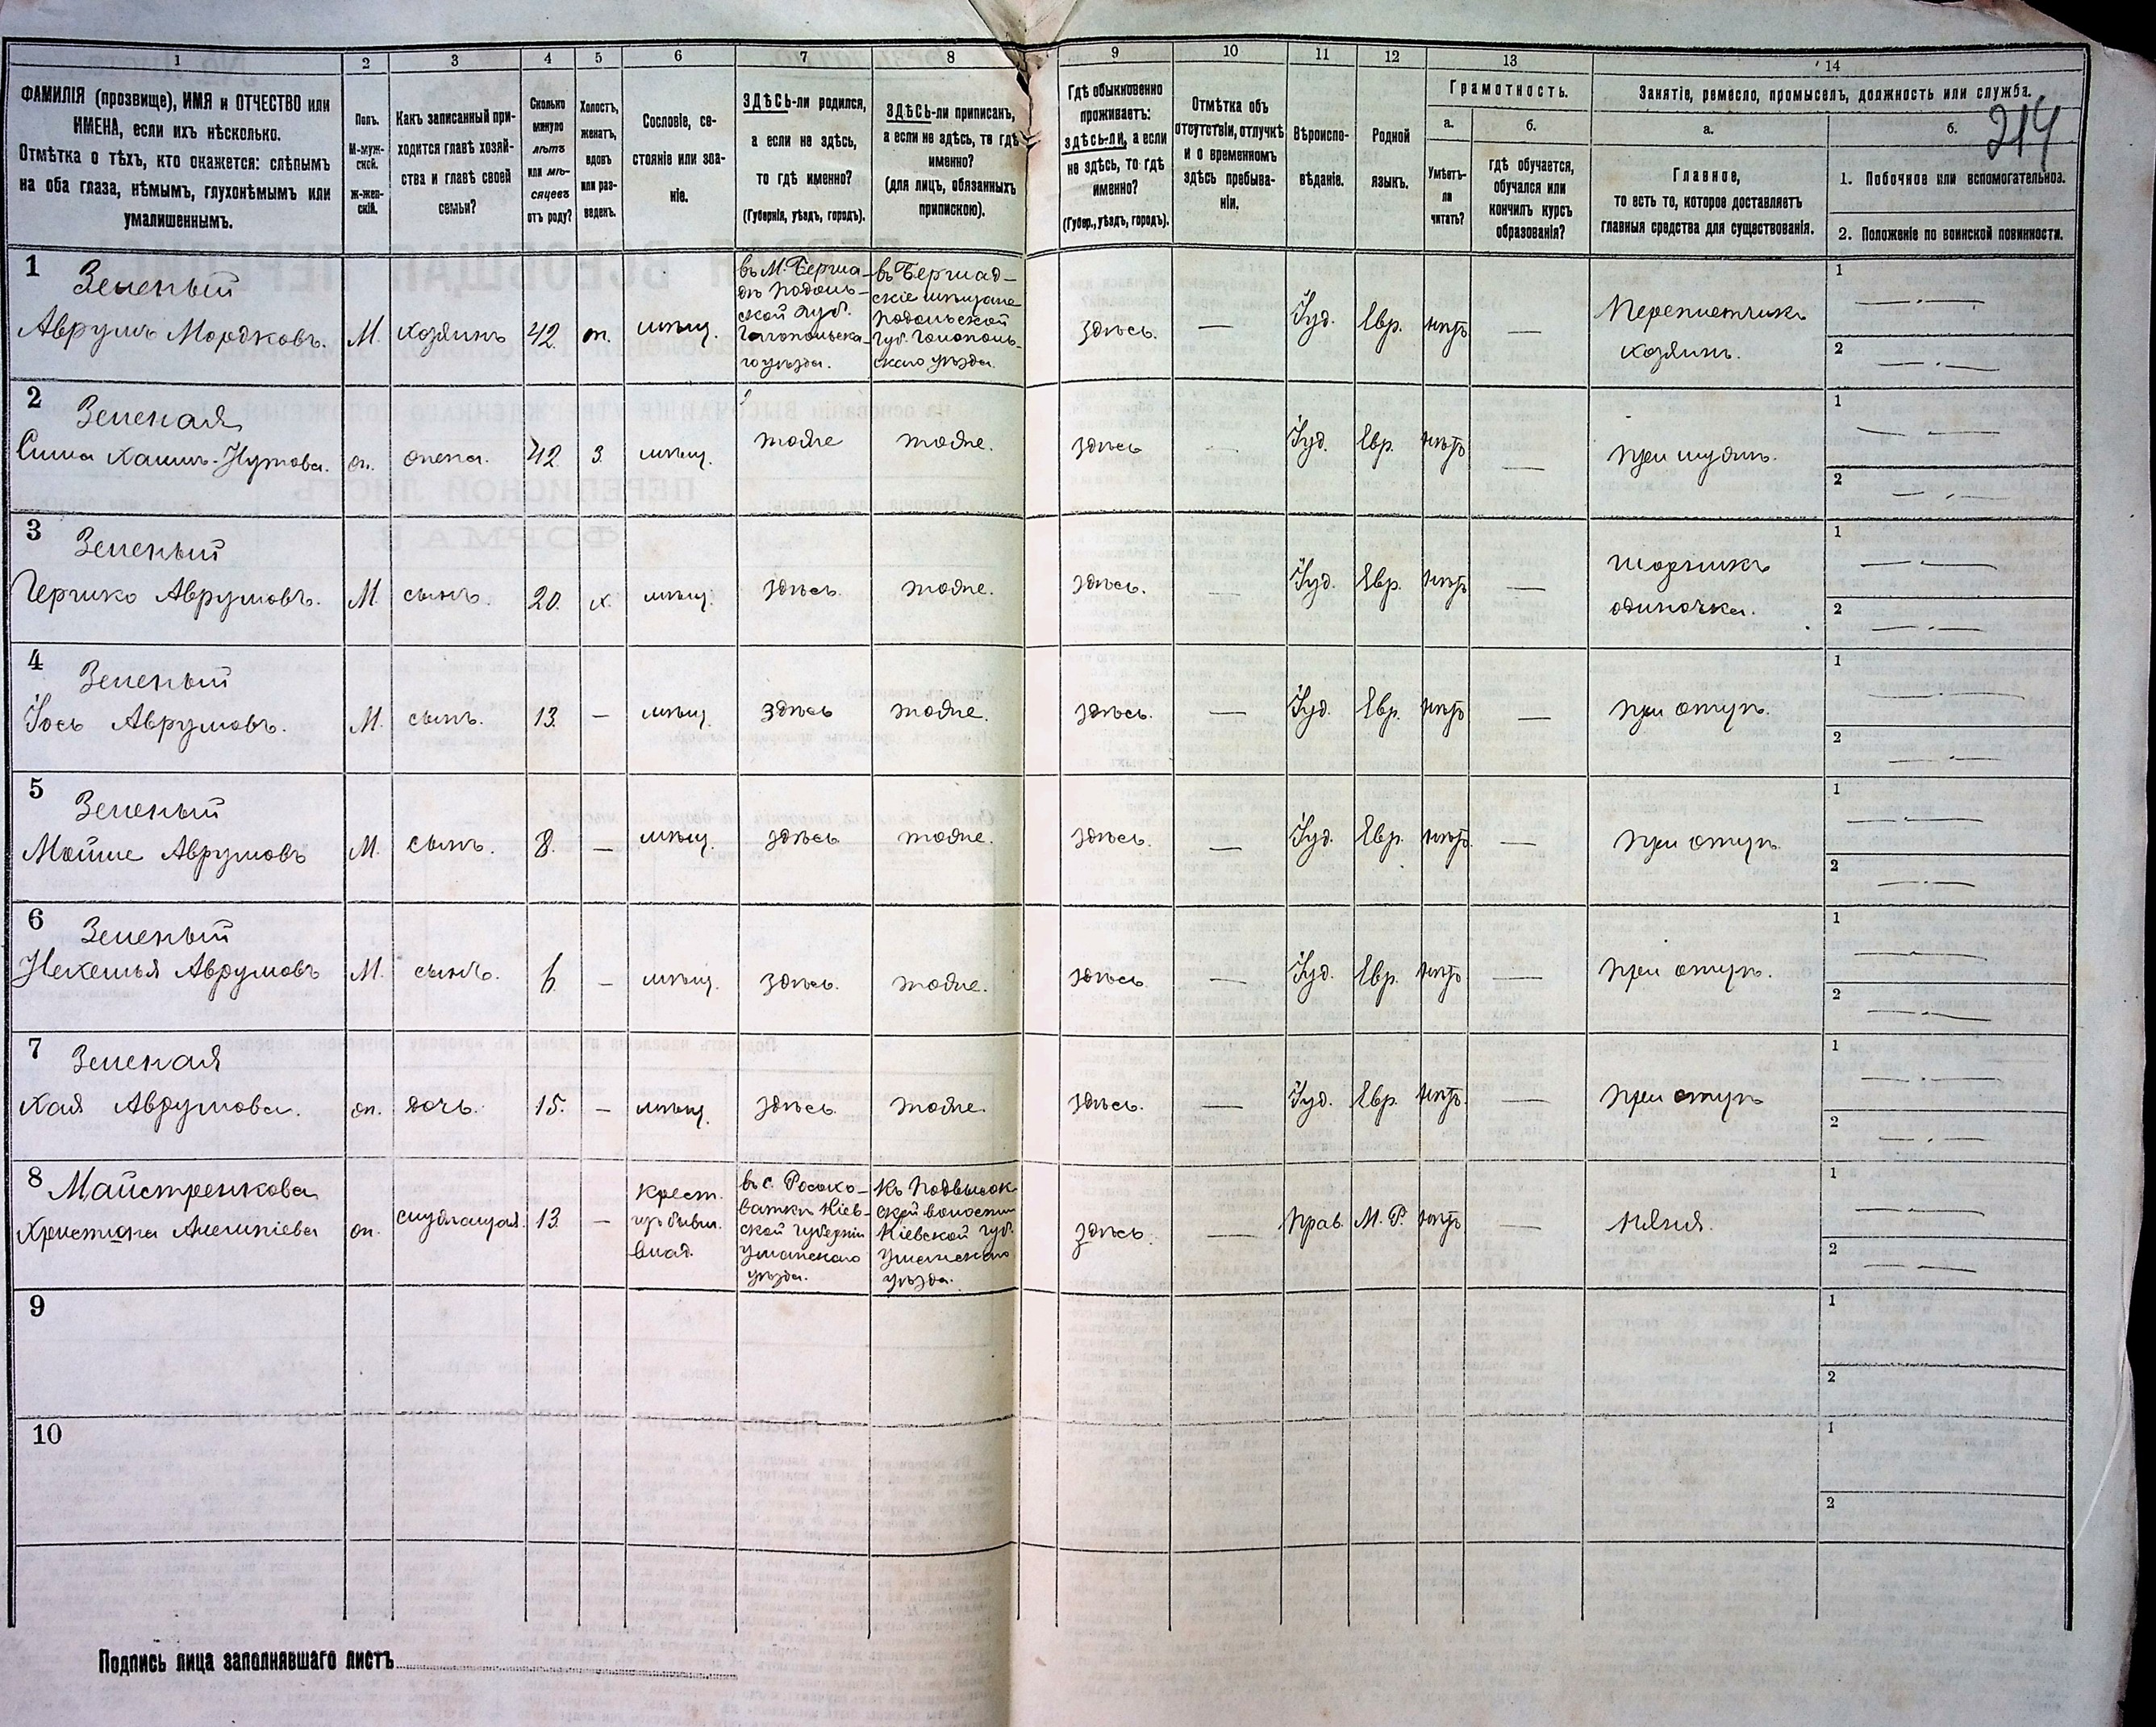 1
2
3
4
5
6
7
8
9
10
11
12
13
14
ФАМИЛІЯ (прозвище), ИМЯ и ОТЧЕСТВО или
ИМЕНА, если ихъ нѣсколько.
Отмѣтка о тѣхъ, кто окажется: слѣпымъ
на оба глаза, нѣмымъ, глухонѣмымъ или
умалишеннымъ.
Полъ.
М-муж-
ской.
ж-жен-
скій.
Какъ записанный при-
ходится главѣ хозяй-
ства и главѣ своей
семьи?
Сколько
минуло
лѣтъ
или мѣ-
сяцевъ
отъ роду?
Холостъ,
женатъ,
вдовъ
или раз-
веденъ.
Сословіе, со-
стояніе или зва-
ніе.
ЗДѢСЬ-ли родился,
а если не здѣсь,
то гдѣ именно?
(Губернія, уѣздъ, городъ).
ЗДѢСЬ-ли приписанъ,
а если не здѣсь, то гдѣ
именно?
(для лицъ, обязанныхъ
припискою).
Гдѣ обыкновенно
проживаетъ:
здѣсь-ли, а если
не здѣсь, то гдѣ
именно?
(Губер., уѣздъ, городъ).
Отмѣтка объ
отсутствіи, отлучкѣ
и о временномъ
здѣсь пребыва-
ніи.
Вѣроиспо-
вѣданіе.
Родной
языкъ.
Грамотность.
а.
б.
Умѣетъ-
ли
читать?
гдѣ обучается,
обучался или
кончилъ курсъ
образованія?
Занятіе, ремесло, промыселъ, должность или служба.
214
а.
б.
Главное,
то есть то, которое доставляетъ
главныя средства для существованія.
1. Побочное или вспомогательное.
2. Положеніе по воинской повинности.
1
Зеленый
Аврумъ Мордковъ.
М.
хозяинъ
42.
ж.
мѣщ.
въ М. Берша-
дѣ Подоль-
ской Губ.
Гайсинскаго
уѣзда.
въ Бершад-
скіе мѣщане
Подольской
Губ.
скаго уѣзда.
здѣсь.
—
Іуд.
Евр.
нѣтъ
—
хозяинъ.
1
2
2
Зеленая
Сима
ж.
жена.
42.
з.
мѣщ.
тоже
тоже.
здѣсь
—
Іуд.
Евр.
нѣтъ
—
при мужѣ.
1
2
3
Зеленый
Гершко Аврумовъ.
М.
сынъ.
20.
х.
мѣщ.
здѣсь.
тоже.
здѣсь.
—
Іуд.
Евр.
нѣтъ
—
шорникъ
одиночка.
1
2
4
Зеленый
Іось Аврумовъ.
М.
сынъ.
13.
—
мѣщ.
здѣсь
тоже.
здѣсь.
—
Іуд.
Евр.
нѣтъ
—
при отцѣ.
1
2
5
Зеленый
Мойше Аврумовъ
М.
сынъ.
8.
—
мѣщ.
здѣсь
тоже.
здѣсь.
—
Іуд.
Евр.
нѣтъ.
—
при отцѣ.
1
2
6
Зеленый
Нехемья Аврумовъ
М.
сынъ.
6.
—
мѣщ.
здѣсь.
тоже.
здѣсь.
—
Іуд.
Евр.
нѣтъ
—
при отцѣ.
1
2
7
Зеленая
Хая Аврумова.
ж.
дочь.
15.
—
мѣщ.
здѣсь.
тоже.
здѣсь.
—
Іуд.
Евр.
нѣтъ.
—
при отцѣ
1
2
8
Майстренкова
Христина Алексѣева
ж.
служащая.
13.
—
крест.
изъ бывш.
влад.
въ с. Росохо-
ватки Кіев-
ской губерніи
Уманскаго
уѣзда.
къ Подвысоц-
кой волости
Кіевской губ.
Уманскаго
уѣзда.
здѣсь.
—
Прав.
М. Р.
нѣтъ
—
няня.
1
2
9
1
2
10
1
2
Подпись лица заполнявшаго листъ